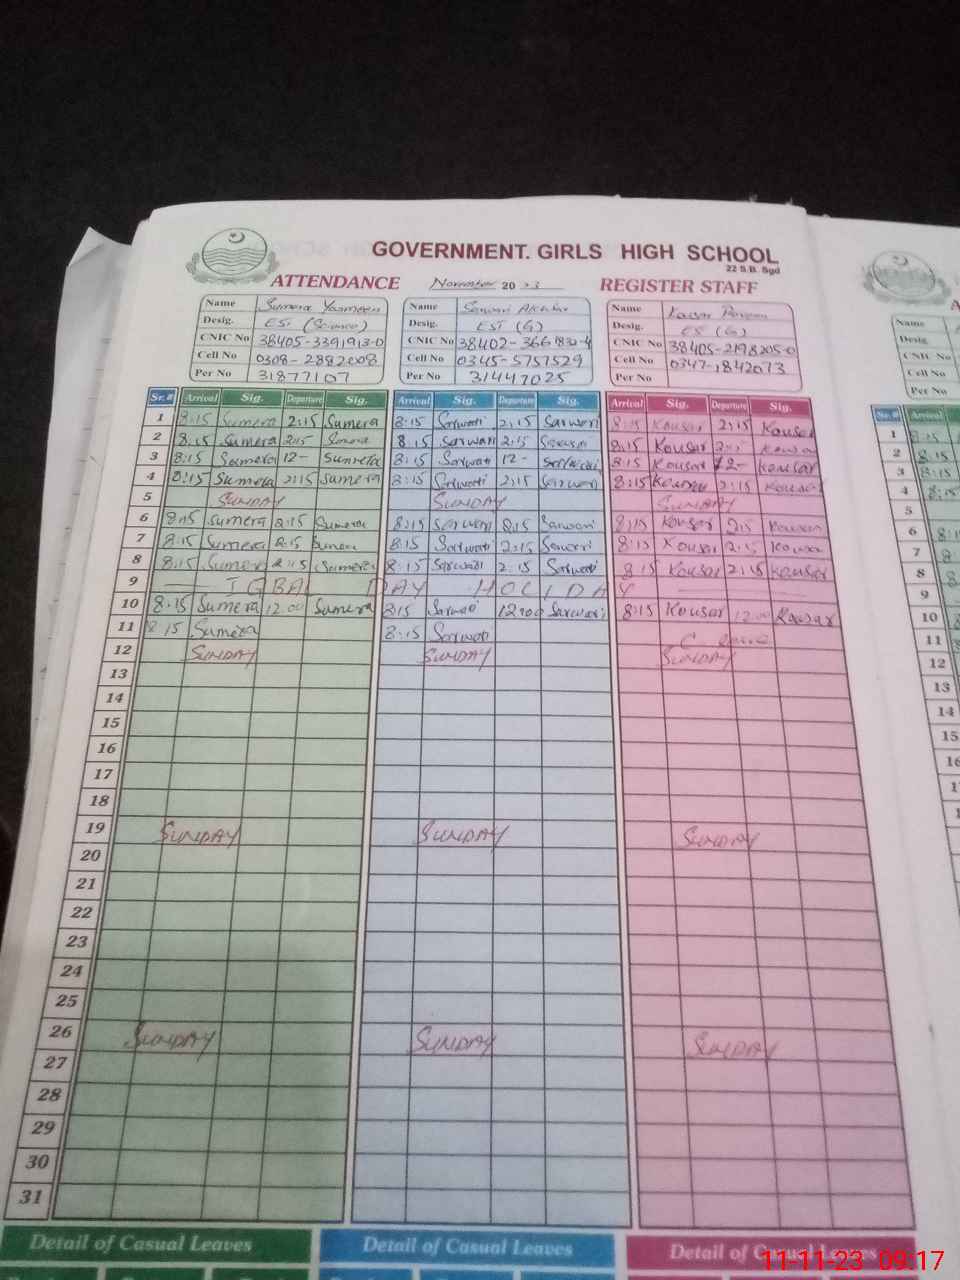 GOVERNMENT. GIRLS HIGH SCHOOL
22 S.B. Sgd
ATTENDANCE November 2023 REGISTER STAFF
Name Sumera Yasmeen Name Sarwari Akhtar Name
Desig. EST (Science) Desig. EST (G) Desig. (G)
CNIC No 38405-3391913-0 CNIC No 38402- CNIC No 38405-2198205-0
Cell No 0308-2882008 Cell No 0345-5757529 Cell No 0347-1842073
Per No 31877107 Per No 31447025 Per No
Sr. # Arrival Sig. Departure Sig. Arrival Sig. Departure Sig. Arrival Sig. Departure Sig.
1 8:15 Sumera 2:15 Sumera 8:15 Sarwari 2:15 Sarwari 8:15 Kousar 2:15 Kousar
2 8:15 Sumera 2:15 Sumera 8:15 Sarwari 2:15 Sarwari 8:15 Kousar Kousar
3 8:15 Sumera 12- Sumera 8:15 Sarwari 12- Sarwari 8:15 Kousar 12- Kousar
4 8:15 Sumera 2:15 Sumera 8:15 Sarwari 2:15 Sarwari 8:15 Kousar 2:15 Kousar
5 SUNDAY SUNDAY SUNDAY
6 8:15 Sumera 2:15 Sumera 8:15 Sarwari Sarwari 8:15 Kousar 2:15 Kousar
7 8:15 Sumera 2:15 Sumera 8:15 Sarwari 2:15 Sarwari 8:15 Kousar 2:15 Kousar
8 8:15 Sumera 2:15 Sumera 8:15 Sarwari 2:15 Sarwari 8:15 Kousar 2:15 Kousar
9 IQBAL DAY HOLIDAY
10 8:15 Sumera 12:00 Sumera 8:15 Sarwari 12:00 Sarwari 8:15 Kousar 12:00 Kousar
11 8:15 Sumera 8:15 Sarwari C. leave
12 SUNDAY SUNDAY SUNDAY
13
14
15
16
17
18
19 SUNDAY SUNDAY SUNDAY
20
21
22
23
24
25
26 SUNDAY SUNDAY SUNDAY
27
28
29
30
31
Detail of Casual Leaves Detail of Casual Leaves Detail of Casual Leaves
Name
Desig.
CNIC No
Cell No
Per No
Sr. # Arrival
1
2 8:15
3 8:15
4 8:15
5
6
7
8
9
10
11
12
13
14
15
11-11-23 09:17